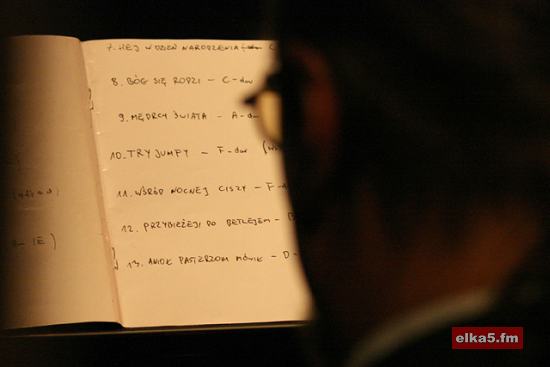 7. HEJ W DZIEŃ NARODZENIA
8. BÓG SIĘ RODZI - C-dur
9. MĘDRCY ŚWIATA - A-dur
10. TRYJUMFY - F-dur
11. WŚRÓD NOCNEJ CISZY - F-d
12. PRZYBIEŻEJI DO BETLEJEM -
13. ANIOŁ PASTERZOM MÓWIŁ - D -
IE)
elka5.fm